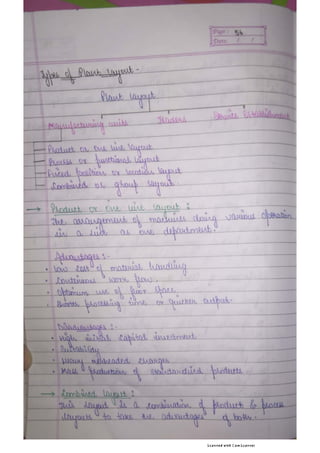 Page: 54
Date: / /
Types of Plant Layout -
Plant layout
Manufacturing units Traders Service Establishment
Product or line layout
Process or functional layout
Fixed position or location layout
Combined or group layout
→ Product or line layout :
The arrangement of machines doing various operation
in a line as one department.
Advantages :-
• Low cost of material handling
• Continuous work flow.
• Optimum use of floor space.
• Shorter processing time or quicker output.
Disadvantages :-
• High initial capital investment
•
• Heavy overhead charges
• Mass production of standardized products
→ Combined layout :
This layout is a combination of product & process
layouts to take the advantages of both.
Scanned with CamScanner